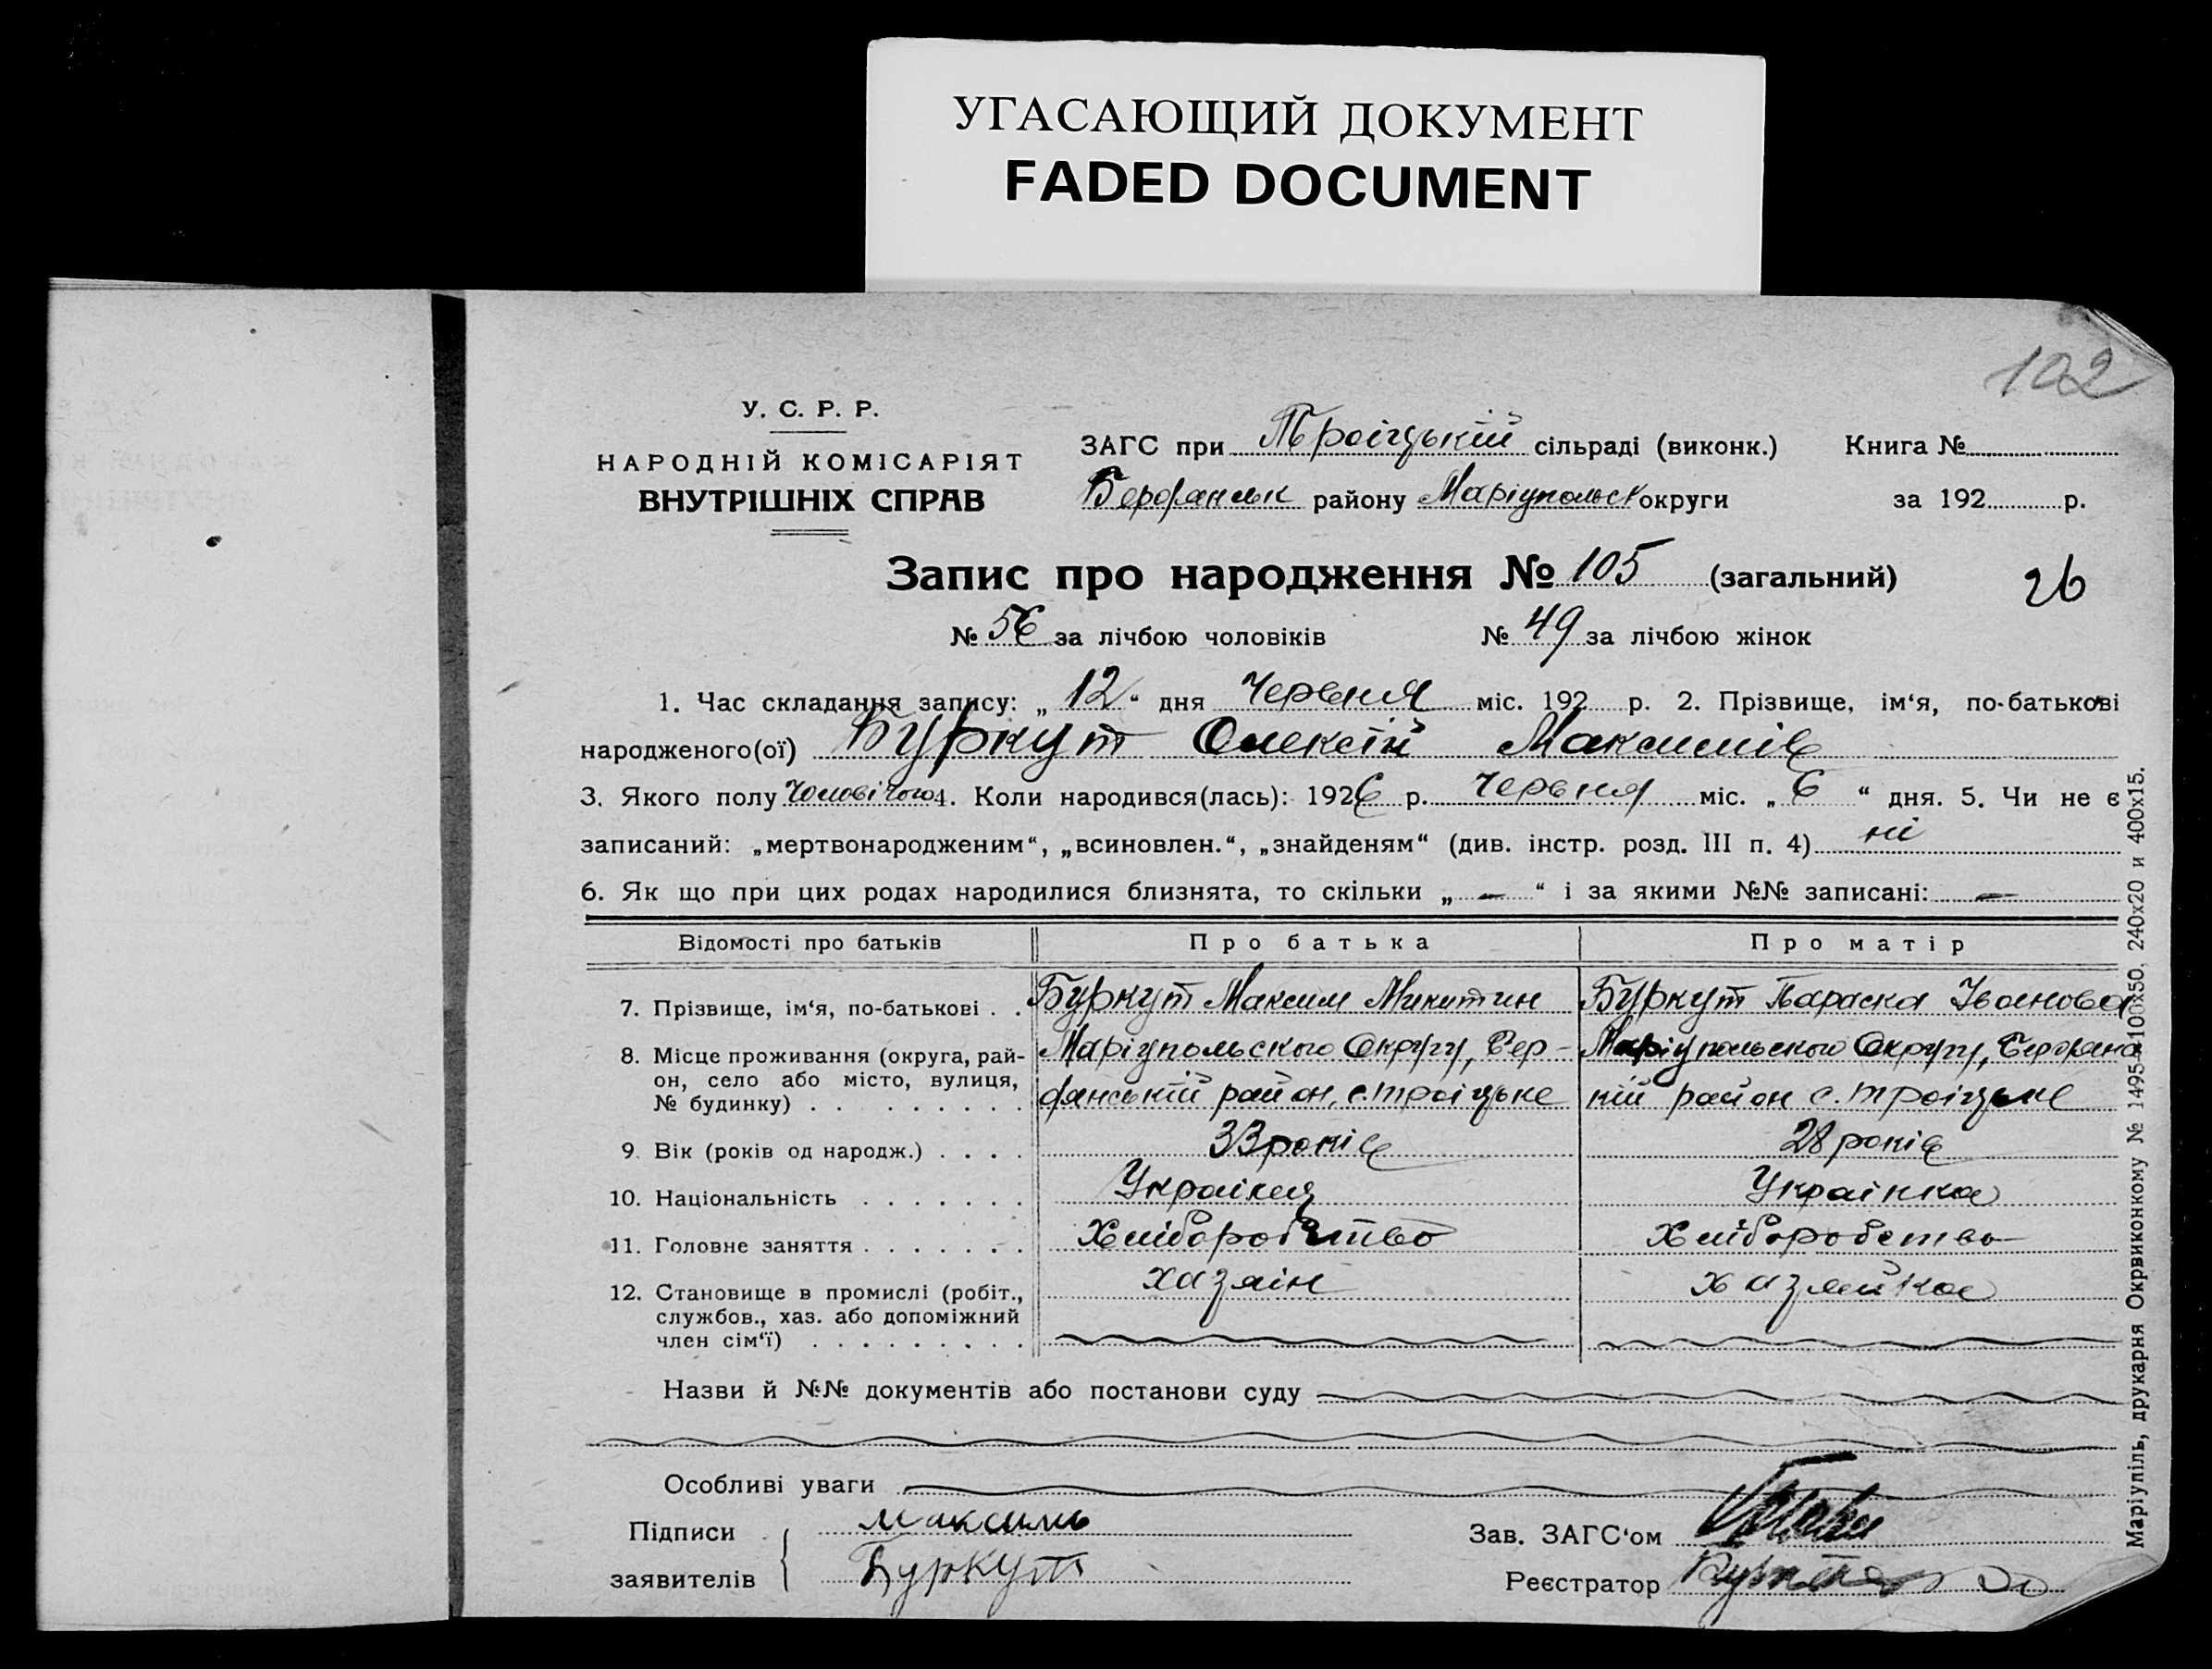 УГАСАЮЩИЙ ДОКУМЕНТ
FADED DOCUMENT
102
У. С. Р. Р.
НАРОДНІЙ КОМІСАРІЯТ
ВНУТРІШНІХ СПРАВ
ЗАГС при Троіцькій сільраді (виконк.) Книга №
Бердянськ району Маріупольськ округи за 192 р.
Запис про народження № 105 (загальний) 26
№ 56 за лічбою чоловіків № 49 за лічбою жінок
1. Час складання запису: „ 12 “ дня Червня міс. 192 р. 2. Прізвище, ім‘я, по-батькові
народженого(ої) Буркут Олексій Максимів
3. Якого полу Чоловічого 4. Коли народився(лась): 1926 р. Червня міс. „ 6 “ дня. 5. Чи не є
записаний: „мертвонародженим“, „всиновлен.“, „знайденям“ (див. інстр. розд. III п. 4) ні
6. Як що при цих родах народилися близнята, то скільки „ — “ і за якими №№ записані: —
Відомості про батьків Про батька Про матір
7. Прізвище, ім‘я, по-батькові . . Буркут Максим Микитин Буркут Параска Іванова
8. Місце проживання (округа, рай- Маріупольського Округу, Бер- Маріупольського Округу, Бердянс
он, село або місто, вулиця, дянській район, с. Троіцьке кій район с. Троіцьке
№ будинку) . . . . . . . . .
9. Вік (років од народж.) . . . . 33 років 28 років
10. Національність . . . . . . . Украінец Украінка
11. Головне заняття . . . . . . . Хліборобство Хліборобство
12. Становище в промислі (робіт., хазяін хазяйка
службов., хаз. або допоміжний
член сім‘ї) . . . . . . . . .
Назви й №№ документів або постанови суду
Особливі уваги
Підписи Максимь Зав. ЗАГС‘ом
заявителів Буркут Реєстратор
Маріупіль, друкарня Окрвиконкому № 1495—100x50, 240x20 и 400x15.